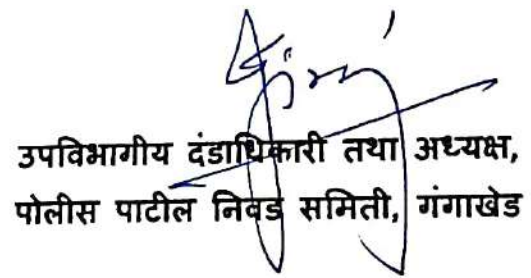 उपविभागीय दंडाधिकारी तथा अध्यक्ष,
पोलीस पाटील निवड समिती, गंगाखेड